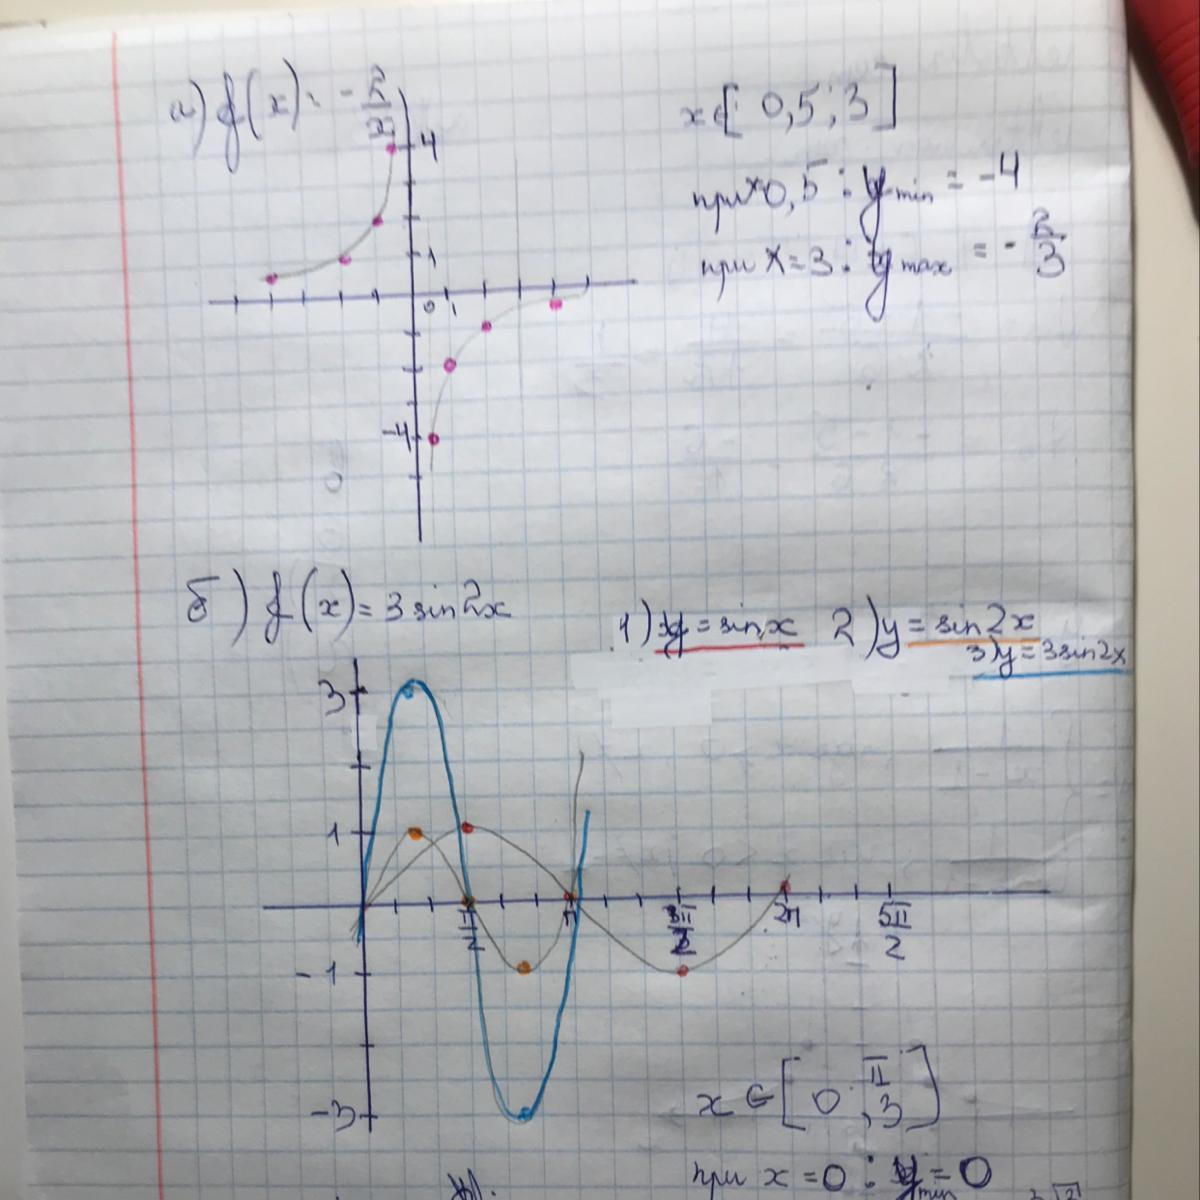 а) f(x) = -2/x
x ∈ [0,5; 3]
при x 0,5 : y min = -4
при x = 3 : y max = -2/3
4
1
0 1
-4
б) f(x) = 3 sin 2x
1) y = sin x 2) y = sin 2x
3) y = 3 sin 2x
3
1
π/2 π 3π/2 2π 5π/2
-1
-3
x ∈ [0; π/3]
при x = 0 : y min = 0